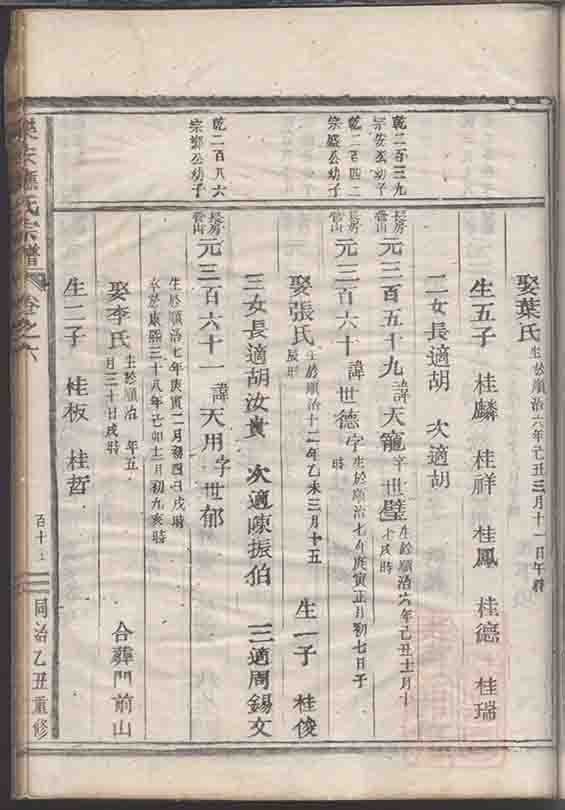 娶葉氏 生於順治六年己丑三月十一日午時
生五子 桂麟 桂祥 桂鳳 桂德 桂瑞
二女長適胡 次適胡
乾二百三九
宗 公幼子
長房
管山
元三百五十九諱天寵字世璧 生於順治六年己丑十一月十
戌時
乾二百四二
宗盛公幼子
長房
管山
元三百六十諱世德字 生於順治七年庚寅正月初七日子
時
娶張氏 生於順治十二年乙未三月十五
辰時
生一子 桂俊
三女長適胡汝貴 次適陳振伯 三適周錫文
乾二百八六
宗鄉公幼子
長房
管山
元三百六十一諱天用字世郁
生於順治七年庚寅二月初四日戌時
卒於康熙三十八年己卯十一月初九亥時
娶李氏 生於順治 年五
月三十日戌時
合葬門前山
生二子 桂板 桂哲
氏宗譜 卷之六
百十
同治乙丑重修